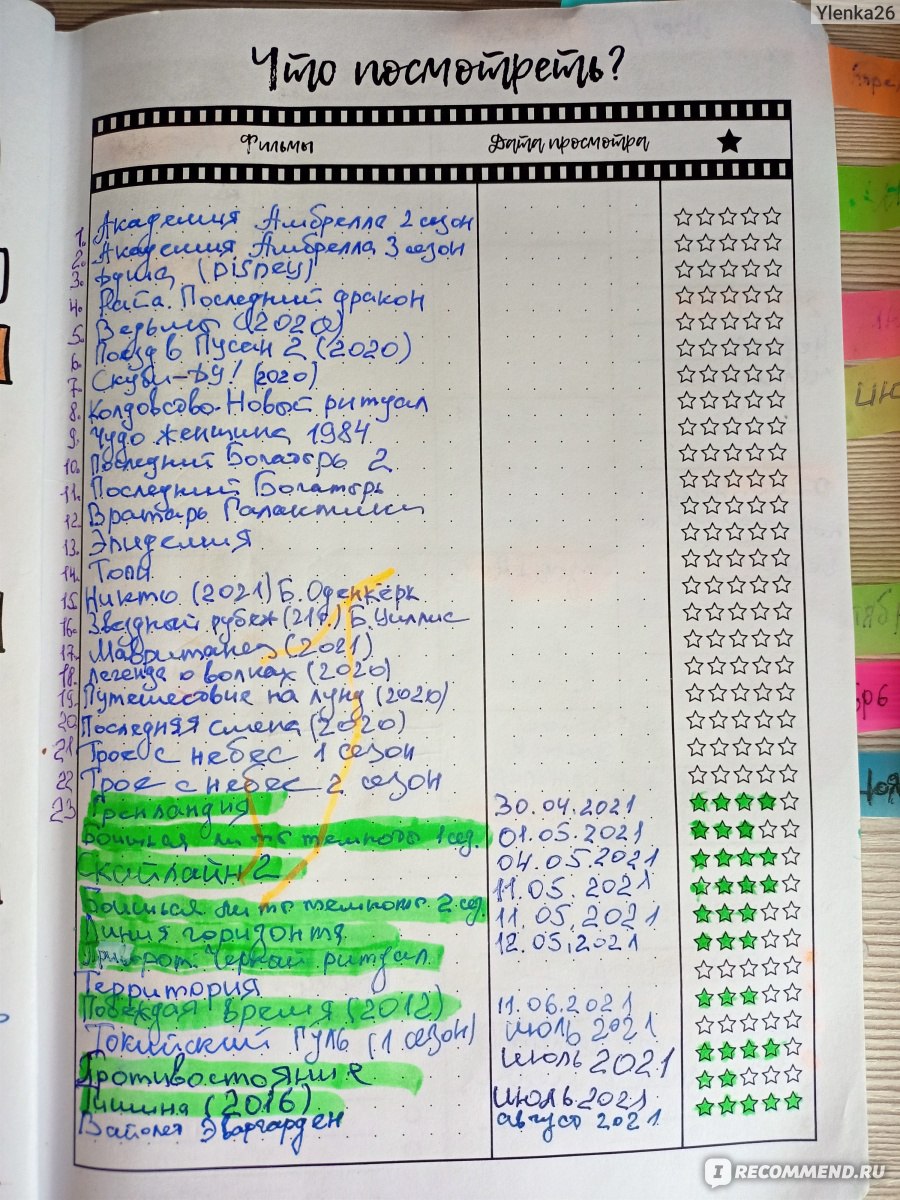 Ylenka26
Что посмотреть?
Фильмы Дата просмотра
1. Академия Амбрелла 2 сезон
2. Академия Амбрелла 3 сезон
3. Душа (DiSNEY)
4. Райа. Последний дракон
5. Ведьмы (2020)
6. Поезд в Пусан 2 (2020)
7. Скуби-ДУ! (2020)
8. Колдовство. Новый ритуал
9. Чудо женщина 1984
10. Последний Богатырь 2
11. Последний Богатырь
12. Вратарь Галактики
13. Эпидемия
14. Топи
15. Никто (2021) Б. Оденкёрк
16. Звездный рубеж (21г.) Б. Уиллис
17. Мавританец (2021)
18. Легенда о волках (2020)
19. Путешествие на луну (2020)
20. Последняя смена (2020)
21 Трое с небес 1 сезон
22 Трое с небес 2 сезон
23 Гренландия 30.04.2021
Боишься ли ты темноты 1 сез. 01.05.2021
Скайлайн 2 04.05.2021
Боишься ли ты темноты 2 сез. 11.05.2021
Линия горизонта 11.05.2021
Приворот. Черный ритуал 12.05.2021
Территория
Побеждая время (2012) 11.06.2021
Токийский Гуль (1 сезон) июль 2021
Противостояние июль 2021
Тишина (2016) июль 2021
Вайолет Эвергарден август 2021
IRECOMMEND.RU